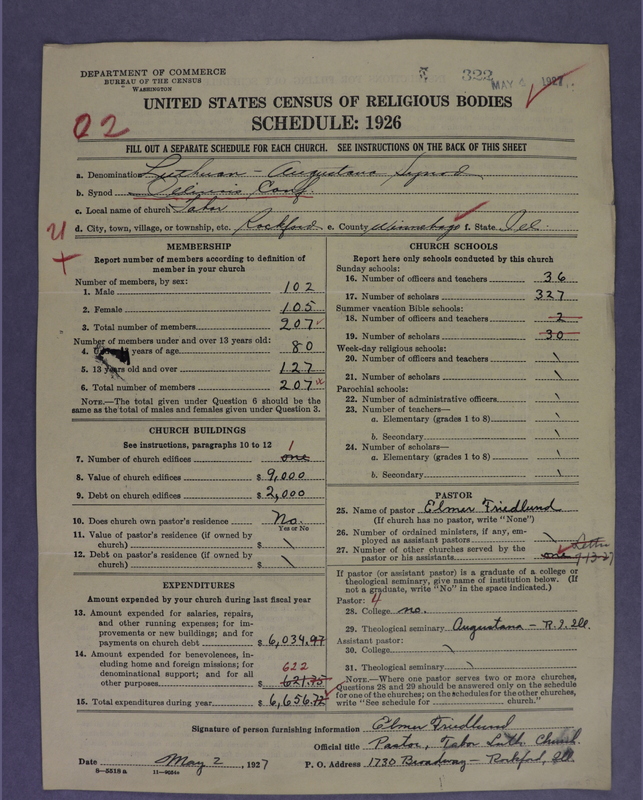 DEPARTMENT OF COMMERCE
BUREAU OF THE CENSUS
WASHINGTON
322
MAY 1927
UNITED STATES CENSUS OF RELIGIOUS BODIES
SCHEDULE: 1926
02
FILL OUT A SEPARATE SCHEDULE FOR EACH CHURCH. SEE INSTRUCTIONS ON THE BACK OF THIS SHEET
a. Denomination Lutheran - Augustana Synod
b. Synod Illinois Conf.
c. Local name of church Tabor
d. City, town, village, or township, etc. Rockford e. County Winnebago f. State Ill.
MEMBERSHIP
Report number of members according to definition of
member in your church
Number of members, by sex:
1. Male 102
2. Female 105
3. Total number of members 207
Number of members under and over 13 years old:
4. years of age 80
5. 13 years old and over 127
6. Total number of members 207
NOTE.—The total given under Question 6 should be
the same as the total of males and females given under Question 3.
CHURCH BUILDINGS
See instructions, paragraphs 10 to 12
1
7. Number of church edifices one
8. Value of church edifices $ 9,000
9. Debt on church edifices $ 2,000
10. Does church own pastor's residence No.
Yes or No
11. Value of pastor's residence (if owned by
church) $ \
12. Debt on pastor's residence (if owned by
church) $ \
EXPENDITURES
Amount expended by your church during last fiscal year
13. Amount expended for salaries, repairs,
and other running expenses; for im-
provements or new buildings; and for
payments on church debt $ 6,034.97
14. Amount expended for benevolences, in-
cluding home and foreign missions; for
denominational support; and for all
other purposes $ 621.75
622
15. Total expenditures during year $ 6,656.72
CHURCH SCHOOLS
Report here only schools conducted by this church
Sunday schools:
16. Number of officers and teachers 36
17. Number of scholars 327
Summer vacation Bible schools:
18. Number of officers and teachers 2
19. Number of scholars 30
Week-day religious schools:
20. Number of officers and teachers \
21. Number of scholars \
Parochial schools:
22. Number of administrative officers \
23. Number of teachers—
a. Elementary (grades 1 to 8) \
b. Secondary \
24. Number of scholars—
a. Elementary (grades 1 to 8) \
b. Secondary \
PASTOR
25. Name of pastor Elmer Friedlund
(If church has no pastor, write "None")
26. Number of ordained ministers, if any, em-
ployed as assistant pastors \
27. Number of other churches served by the
pastor or his assistants one
Letter
9-13-27
If pastor (or assistant pastor) is a graduate of a college or
theological seminary, give name of institution below. (If
not a graduate, write "No" in the space indicated.)
Pastor: 4
28. College no.
29. Theological seminary Augustana - R.I. Ill.
Assistant pastor:
30. College \
31. Theological seminary \
NOTE.—Where one pastor serves two or more churches,
Questions 28 and 29 should be answered only on the schedule
for one of the churches; on the schedules for the other churches,
write "See schedule for church."
Signature of person furnishing information Elmer Friedlund
Official title Pastor, Tabor Luth. Church
Date May 2, 1927 P. O. Address 1730 Broadway - Rockford, Ill.
8—5518 a